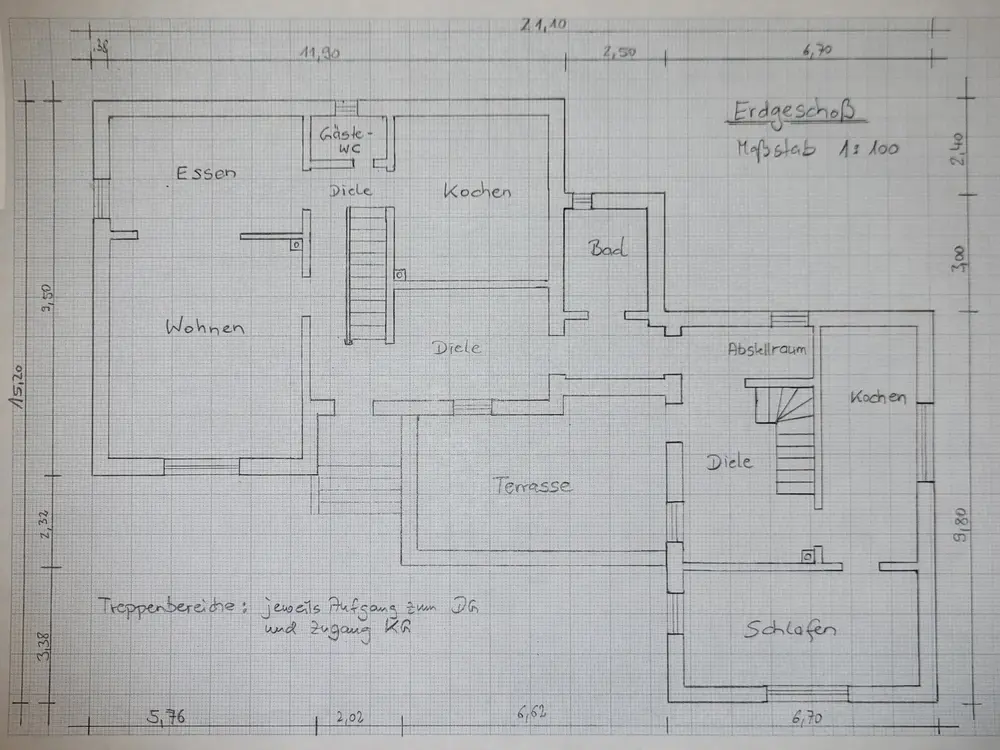 21,10
38
11,90
2,50
6,70
Erdgeschoß
Maßstab 1:100
2,40
Gäste-
WC
Essen
Diele
Kochen
Bad
3,00
9,50
Wohnen
Diele
Abstellraum
15,20
Kochen
Diele
Terrasse
2,32
9,80
Treppenbereiche: jeweils Aufgang zum DG
und Zugang KG
Schlafen
3,38
5,76
2,02
6,62
6,70